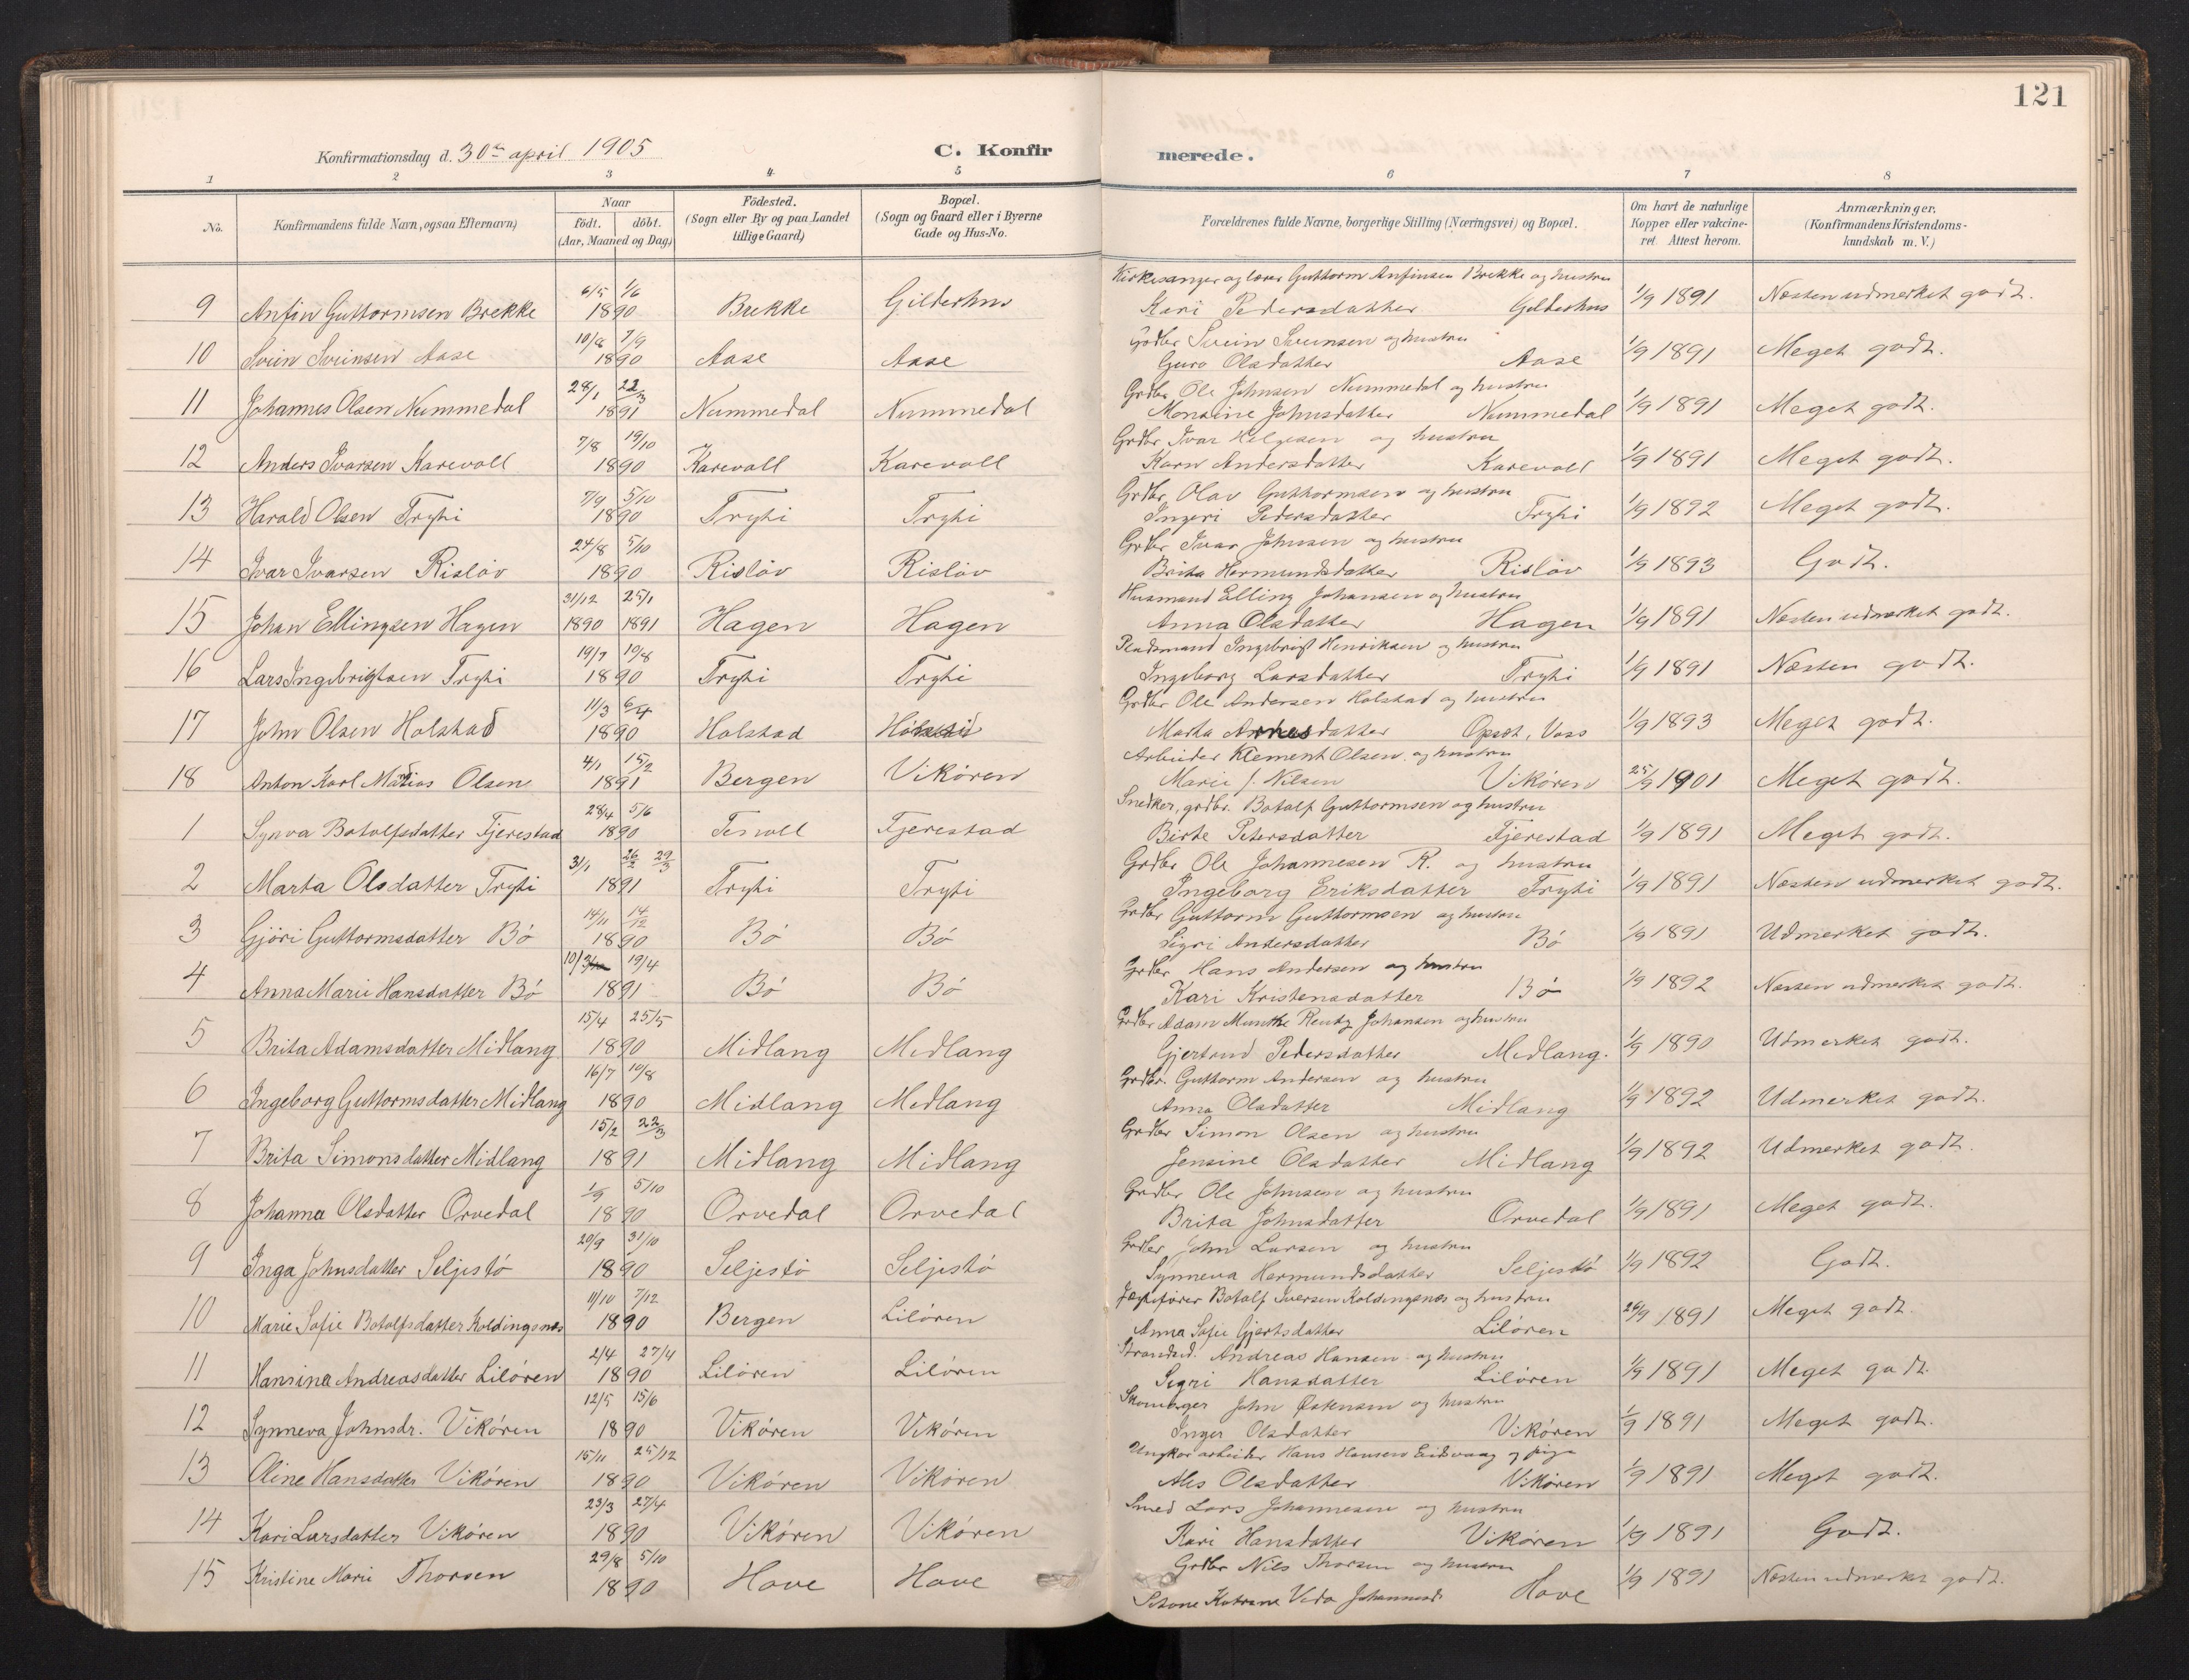 121
Konfirmationsdag d. 30te april 1905
C. Konfirmerede.
1 2 3 4 5 6 7 8
No. Konfirmandens fulde Navn, ogsaa Efternavn) Naar födt. döbt. (Aar, Maaned og Dag) Födested. (Sogn eller By og paa Landet tillige Gaard) Bopæl. (Sogn og Gaard eller i Byerne Gade og Hus-No. Forældrenes fulde Navne, borgerlige Stilling (Næringsvei) og Bopæl. Om havt de naturlige Kopper eller vakcineret. Attest herom. Anmærkninger. (Konfirmandens Kristendomskundskab m. V.)
6/5 1/6 Kirkesanger og lærer Guttorm Anfinsen Brekke og hustru
9 Anfin Guttormsen Brekke 1890 Brekke Gilderhus Kari Pedersdatter Gilderhus 1/9 1891 Næsten udmerket godt.
10/8 7/9 Grdbr Svein Sveinsen og hustru
10 Svein Sveinsen Aase 1890 Aase Aase Guro Olsdatter Aase 1/9 1891 Meget godt.
28/1 22/3 Grdbr Ole Johnsen Nummedal og hustru
11 Johannes Olsen Nummedal 1891 Nummedal Nummedal Monsine Johnsdatter Nummedal 1/9 1891 Meget godt.
7/8 19/10 Grdbr Ivar Helgesen og hustru
12 Anders Ivarsen Karevoll 1890 Karevoll Karevoll Karn Andersdatter Karevoll 1/9 1891 Meget godt.
7/9 5/10 Grdbr Olav Guttormsen og hustru
13 Harald Olsen Tryti 1890 Tryti Tryti Ingeri Pedersdatter Tryti 1/9 1892 Meget godt.
24/8 5/10 Grdbr Ivar Johnsen og hustru
14 Ivar Ivarsen Risløv 1890 Risløv Risløv Brita Hermundsdatter Risløv 1/9 1893 Godt.
31/12 25/1 Husmand Elling Johansen og hustru
15 Johan Ellingsen Hagen 1890 1891 Hagen Hagen Anna Olsdatter Hagen 1/9 1891 Næsten udmerket godt.
19/7 10/8 Pladsmand Ingebrigt Henriksen og hustru
16 Lars Ingebrigtsen Tryti 1890 Tryti Tryti Ingeborg Larsdatter Tryti 1/9 1891 Næsten godt.
11/3 6/4 Grdbr Ole Andersen Holstad og hustru
17 John Olsen Holstad 1890 Holstad Marta datter Opset, Voss 1/9 1893 Meget godt.
4/1 15/2 Arbeider Klement Olsen og hustru
18 Anton Karl Matias Olsen 1891 Bergen Vikøren Marie f. Nilsen Vikøren 25/9 1901 Meget godt.
28/4 5/6 Snedker, grdbr. Botolf Guttormsen og hustru
1 Synva Botolfsdatter Tjerestad 1890 Tjerestad Birte Petersdatter Tjerestad 1/9 1891 Meget godt.
31/1 26/2 29/3 Grdbr Ole Johannesen R. og hustru
2 Marta Olsdatter Tryti 1891 Tryti Tryti Ingeborg Eriksdatter Tryti 1/9 1891 Næsten udmerket godt.
14/11 14/12 Grdbr Guttorm Guttormsen og hustru
3 Gjøri Guttormsdatter Bø 1890 Bø Bø Sigri Andersdatter Bø 1/9 1891 Udmerket godt.
10/3 19/4 Grdbr Hans Andersen og hustru
4 Anna Marie Hansdatter Bø 1891 Bø Bø Kari Kristensdatter Bø 1/9 1892 Næsten udmerket godt.
15/4 25/5 Grdbr Adam Munthe Rentz Johansen og hustru
5 Brita Adamsdatter Midlang 1890 Midlang Midlang Gjertrud Pedersdatter Midlang. 1/9 1890 Udmerket godt.
16/7 10/8 Grdbr. Guttorm Andersen og hustru
6 Ingeborg Guttormsdatter Midlang 1890 Midlang Midlang Anna Olsdatter Midlang 1/9 1892 Udmerket godt.
15/2 22/3 Grdbr Simon Olsen og hustru
7 Brita Simonsdatter Midlang 1891 Midlang Midlang Jensine Olsdatter Midlang 1/9 1892 Udmerket godt.
1/9 5/10 Grdbr Ole Johnsen og hustru
8 Johanna Olsdatter Orvedal 1890 Orvedal Orvedal Brita Johnsdatter Orvedal 1/9 1891 Meget godt.
20/9 31/10 Grdbr John Larsen og hustru
9 Inga Johnsdatter Seljestø 1890 Seljestø Seljestø Synneva Hermundsdatter Seljestø 1/9 1892 Godt.
11/10 7/12 Jægtefører Botolf Iversen Koldingsnes og hustru
10 Marie Sofie Botolfsdatter Koldingsnes 1890 Bergen Liløren Anna Sofie Gjertsdatter Liløren 26/9 1891 Meget godt.
2/4 27/4 Strandsid. Andreas Hansen og hustru
11 Hansina Andreasdatter Liløren 1890 Liløren Liløren Sigri Hansdatter Liløren 1/9 1891 Meget godt.
12/5 15/6 Skomager John Østensen og hustru
12 Synneva Johnsdr. Vikøren 1890 Vikøren Vikøren Inger Olsdatter Vikøren 1/9 1891 Meget godt.
15/11 25/12 Ungkar arbeider Hans Hansen Eidsvaag og pige
13 Oline Hansdatter Vikøren 1890 Vikøren Vikøren Ales Olsdatter Vikøren 1/9 1891 Meget godt.
23/3 27/4 Smed Lars Johannesen og hustru
14 Kari Larsdatter Vikøren 1890 Vikøren Vikøren Kari Hansdatter Vikøren 1/9 1891 Godt.
29/8 5/10 Grdbr Nils Thorsen og hustru
15 Kristine Marie Thorsen 1890 Hove Hove Katrine Johannesd. Hove 1/9 1891 Næsten udmerket godt.